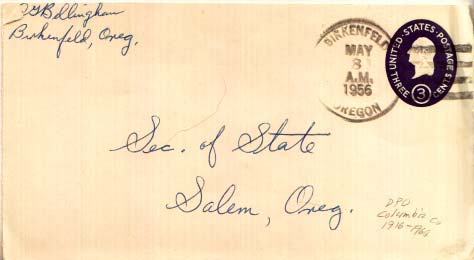 Bellingham
Birkenfeld, Oreg.
BIRKENFELD
MAY
8
A.M.
1956
OREGON
UNITED·STATES·POSTAGE
THREE 3 CENTS
Sec. of State
Salem, Oreg.
DPO
Columbia Co
1916-